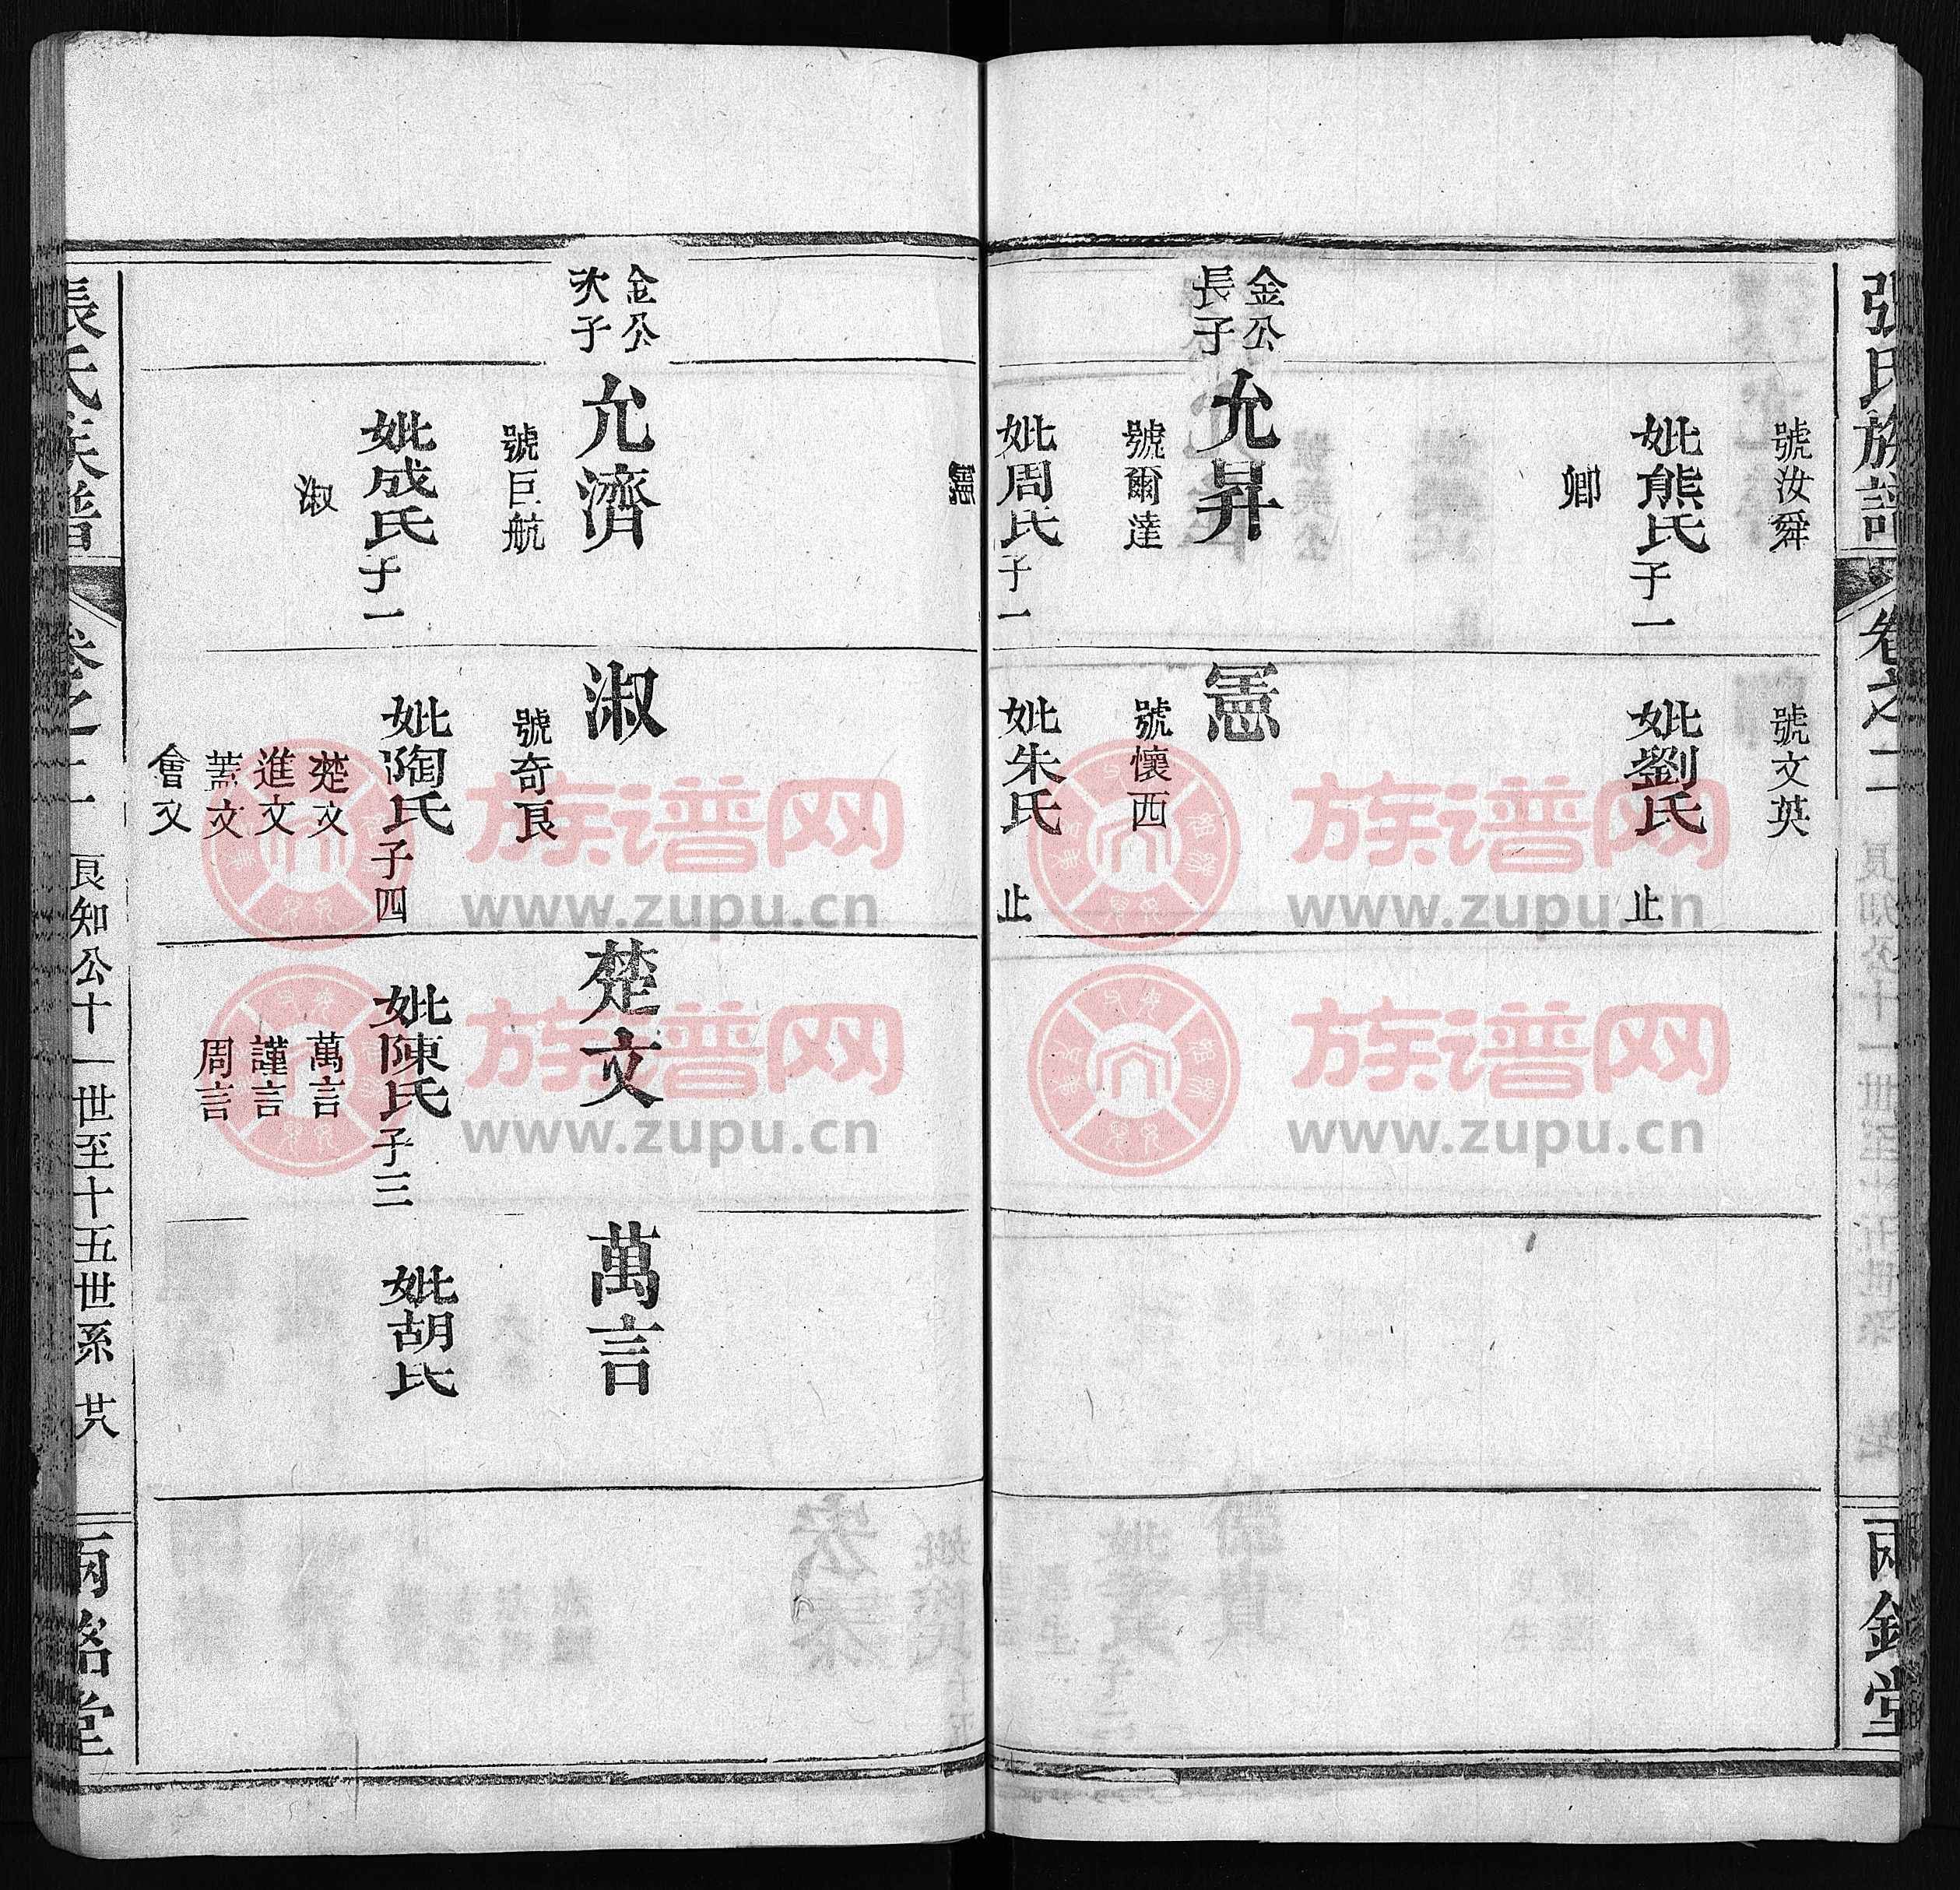 張氏族譜
卷之二
兩銘堂
號汝舜
妣熊氏子一
卿
號文英
妣劉氏
止
金公
長子
允昇
號爾達
妣周氏子一
憲
憲
號懷西
妣朱氏
止
金公
次子
允濟
號巨航
妣成氏子一
淑
淑
號奇良
妣陶氏子四
楚文
進文
蓋文
會文
楚文
妣陳氏子三
萬言
謹言
周言
萬言
妣胡氏
張氏族譜
卷之二
良知公十一世至十五世系
廿八
兩銘堂
族谱网
www.zupu.cn
族谱网
www.zupu.cn
族谱网
www.zupu.cn
族谱网
www.zupu.cn